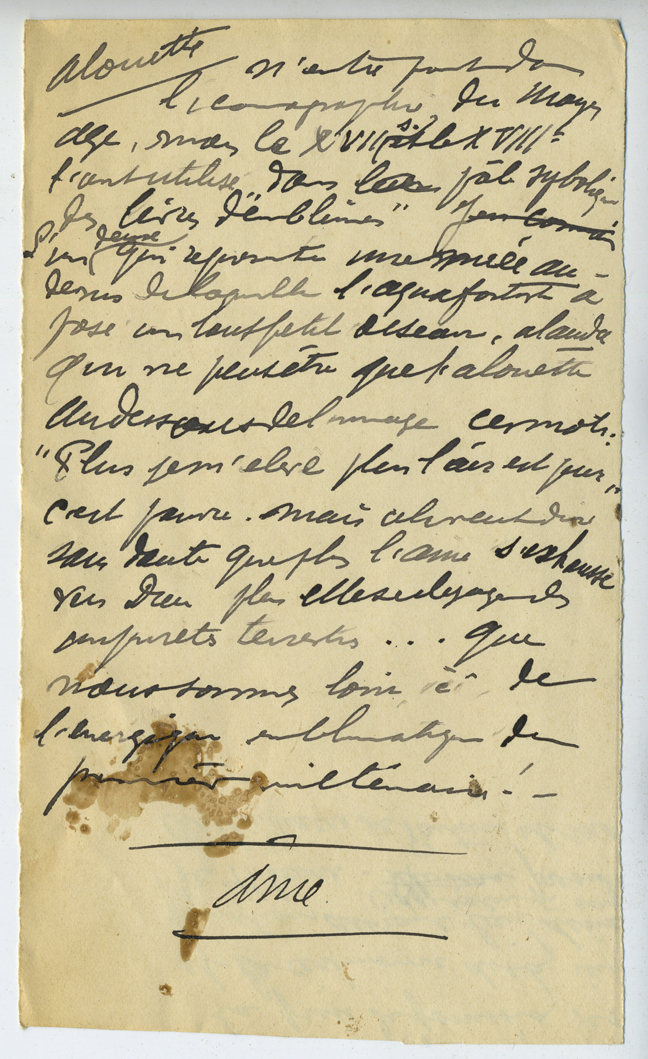 alouette n'entre point dans
l'iconographie du Moyen
age, mais le XVIIe s. et le XVIII e
l'ont utilisé dans leur pâle symbolique
des livres d'emblèmes" J'en connais
l'un qui représente une nuée au-
dessus de laquelle l'aquafortiste a
posé un tout petit oiseau, alauda
qui ne peut être que l'alouette
au dessous de l'image ces mots:
"Plus je m'élève plus l'air est pur"
c'est pauvre. mais ça veut dire
sans doute que plus l'ame s'exhausse
vers Dieu plus elle se dégage des
impuretés terrestres . . . que
nous sommes loin, ici, de
l'énergique emblématique du
premier millénaire! _
Ame